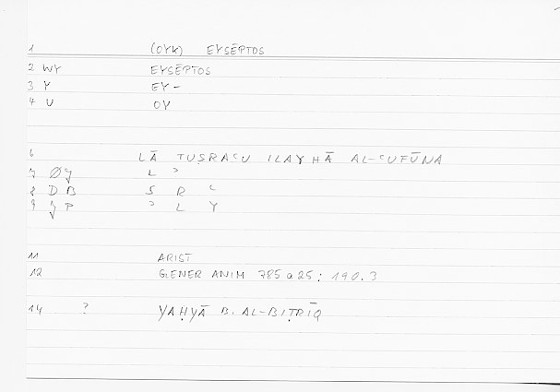 1 (OYK) EYSĒPTOS
2 WY EYSĒPTOS
3 Y EY-
4 U OY
6 LĀ TUSRAʿU ILAYHĀ AL-ʿUFŪNA
7 ØY L ʾ
8 DB S R ʿ
9 ZP ʾ L Y
11 ARIST
12 GENER ANIM 785 a 25 : 190.3
14 ? YAḤYĀ B. AL-BIṬRĪQ